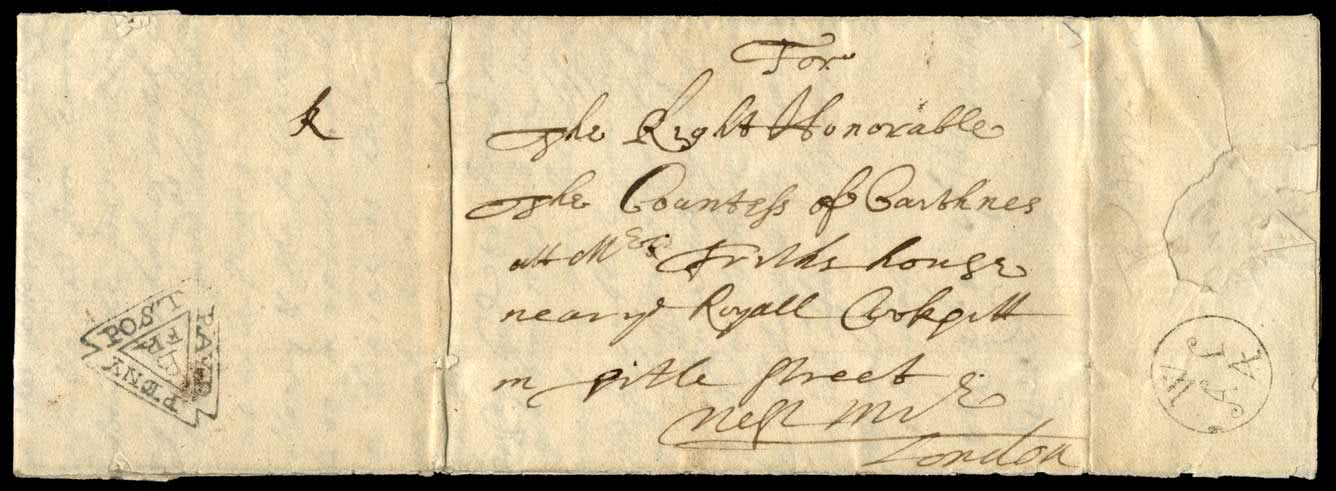 For
k
The Right Honorable
The Countess of Carthnes
att Mrs Friths house
near ye Royall Cockpitt
in pitle street
West Mr
London
PENY POST PAYD